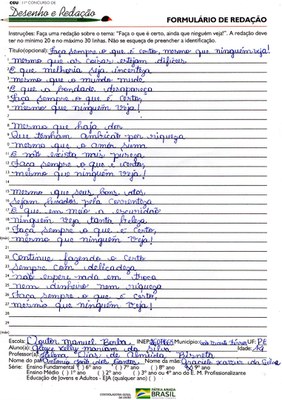 CGU 11º CONCURSO DE
Desenho e Redação
FORMULÁRIO DE REDAÇÃO
Instruções: Faça uma redação sobre o tema: "Faça o que é certo, ainda que ninguém veja!". A redação deve
ter no mínimo 20 e no máximo 30 linhas. Não se esqueça de preencher a identificação.
Título(opcional): Faça sempre o que é certo, mesmo que ninguém veja!
mesmo que as coisas estejam difíceis
E que melhoria seja incerteza
mesmo que o mundo mude
E que a bondade desapareça
Faça sempre o que é certo,
mesmo que ninguém veja!
Mesmo que haja dor
Que tenham ambição por riqueza
mesmo que o amor suma
E não exista mais pureza
Faça sempre o que é certo,
mesmo que ninguém veja!
mesmo que seus bons atos
sejam levados pela correnteza
E que em meio a escuridão
ninguém veja tanta beleza
Faça sempre o que é certo,
mesmo que ninguém veja!
Continue fazendo o certo
Sempre com delicadeza
não espere nada em troca
nem dinheiro nem riqueza
Faça sempre o que é certo,
mesmo que ninguém veja!
Escola: Doutor Manuel Borba INEP: Município: UF: PE
Aluno: da Silva Idade:
Professor: de Almeida
Nome do pai ou responsável: Antonio José
Série: Ensino Fundamental ( ) 6º ano ( ) 7º ano ( ) 8º ano 9º ano
Ensino Médio ( ) 1º ano ( ) 2º ano ( ) 3º ano ou 4º ano do E. M. Profissionalizante
Educação de Jovens e Adultos - EJA (qualquer ano) ( )
CONTROLADORIA-GERAL DA UNIÃO
PÁTRIA AMADA
BRASIL
GOVERNO FEDERAL